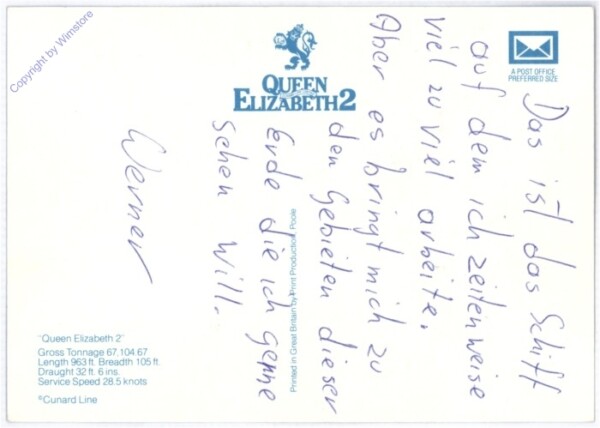 Copyright by Wimstore
A POST OFFICE
PREFERRED SIZE
QUEEN
ELIZABETH 2
Das ist das Schiff
auf dem ich zeitenweise
viel zu viel arbeite.
Aber es bringt mich zu
den Gebieten dieser
Erde die ich gerne
sehen will.
Werner
Printed in Great Britain by Print Production, Poole
"Queen Elizabeth 2"
Gross Tonnage 67,104.67
Length 963 ft. Breadth 105 ft.
Draught 32 ft. 6 ins.
Service Speed 28.5 knots
©Cunard Line